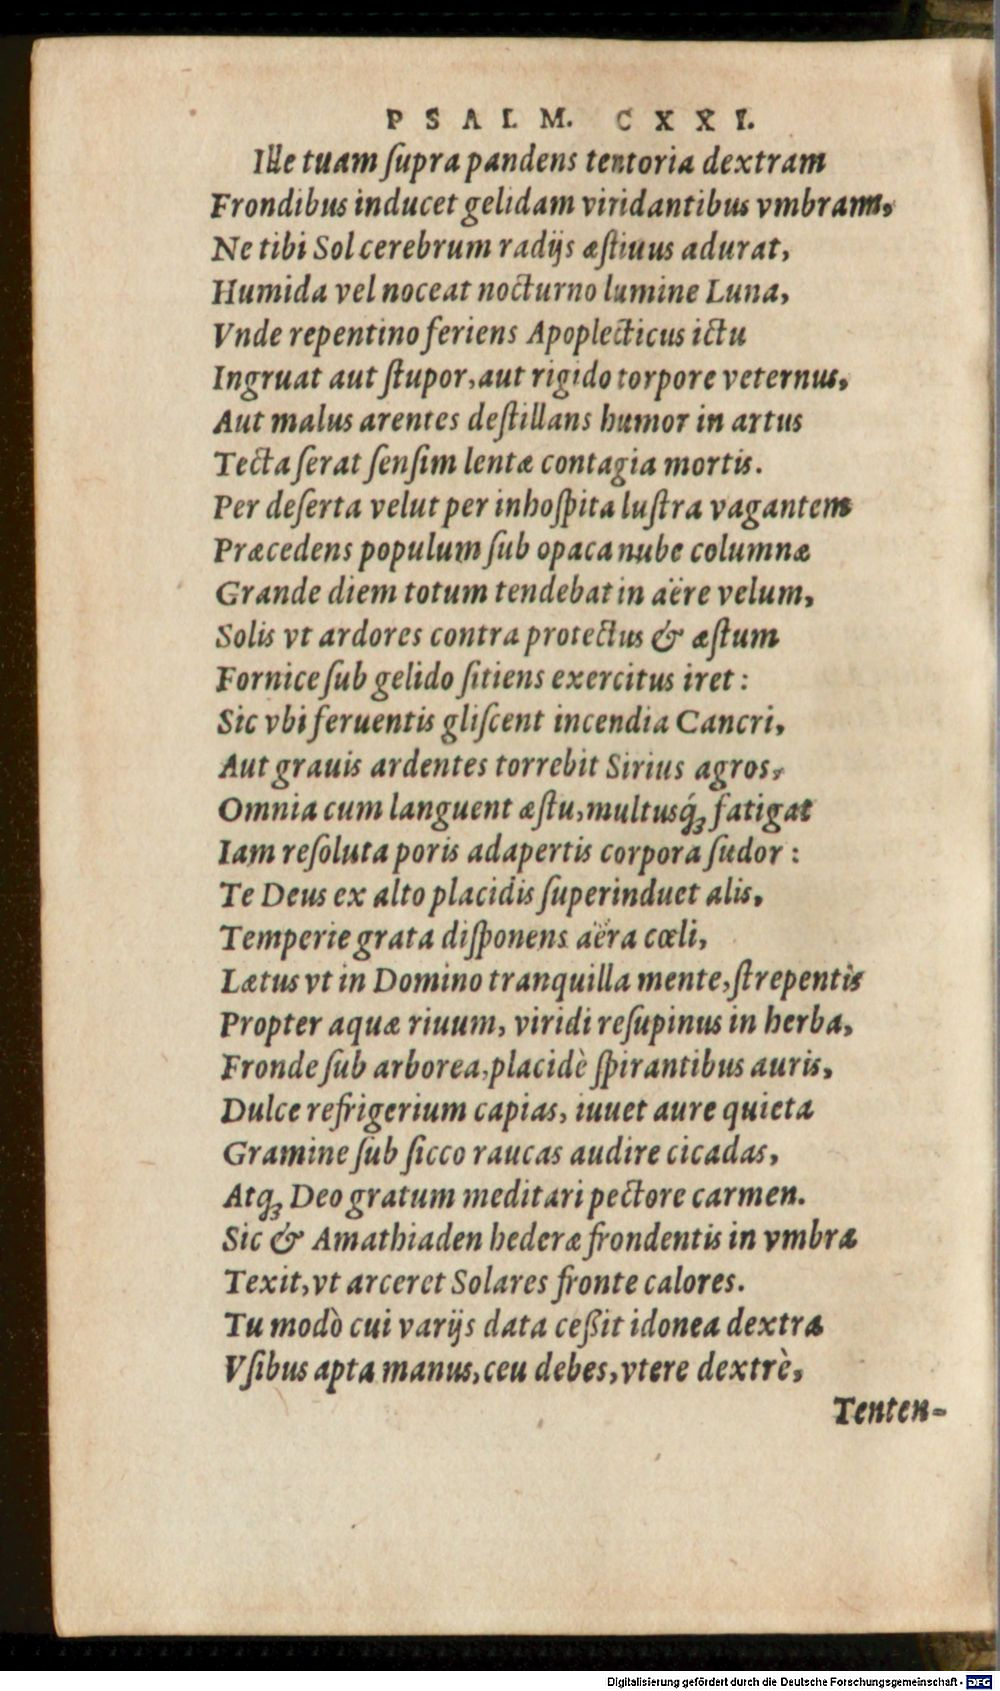 PSALM. CXXI.
Ille tuam ſupra pandens tentoria dextram
Frondibus inducet gelidam viridantibus vmbram,
Ne tibi Sol cerebrum radijs æſtiuus adurat,
Humida vel noceat nocturno lumine Luna,
Vnde repentino feriens Apoplecticus ictu
Ingruat aut ſtupor, aut rigido torpore veternus,
Aut malus arentes deſtillans humor in artus
Tecta ferat ſenſim lentæ contagia mortis.
Per deſerta velut per inhoſpita luſtra vagantem
Præcedens populum ſub opaca nube columnæ
Grande diem totum tendebat in aëre velum,
Solis vt ardores contra protectus & æſtum
Fornice ſub gelido ſitiens exercitus iret:
Sic vbi feruentis gliſcent incendia Cancri,
Aut grauis ardentes torrebit Sirius agros,
Omnia cum languent æſtu, multusq́ꝫ fatigat
Iam reſoluta poris adapertis corpora ſudor:
Te Deus ex alto placidis ſuperinduet alis,
Temperie grata diſponens aëra cœli,
Lætus vt in Domino tranquilla mente, ſtrepentis
Propter aquæ riuum, viridi reſupinus in herba,
Fronde ſub arborea, placidè ſpirantibus auris,
Dulce refrigerium capias, iuuet aure quieta
Gramine ſub ſicco raucas audire cicadas,
Atqꝫ Deo gratum meditari pectore carmen.
Sic & Amathiaden hederæ frondentis in vmbra
Texit, vt arceret Solares fronte calores.
Tu modò cui varijs data ceßit idonea dextra
Vſibus apta manus, ceu debes, vtere dextrè,
Tenten-
Digitalisierung gefördert durch die Deutsche Forschungsgemeinschaft - DFG